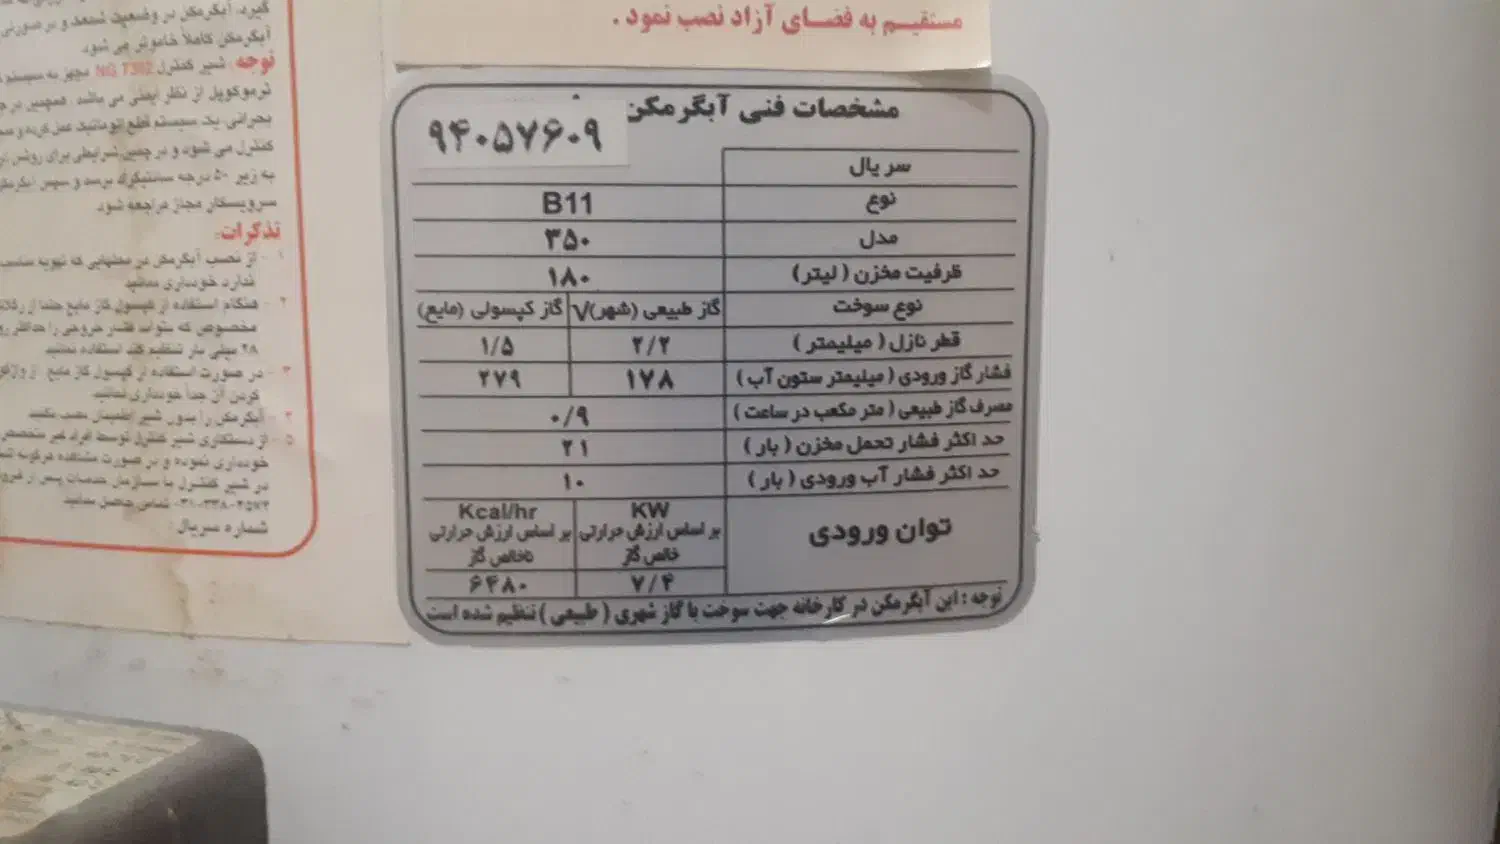 مستقیم به فضای آزاد نصب نمود .
مشخصات فنی آبگرمکن
۹۴۰۵۷۶۰۹
سریال
نوع B11
مدل ۳۵۰
ظرفیت مخزن ( لیتر) ۱۸۰
نوع سوخت گاز طبیعی (شهر)√ گاز کپسولی (مایع)
قطر نازل ( میلیمتر ) ۲/۲ ۱/۵
فشار گاز ورودی ( میلیمتر ستون آب ) ۱۷۸ ۲۷۹
مصرف گاز طبیعی ( متر مکعب در ساعت ) ۰/۹
حد اکثر فشار تحمل مخزن ( بار ) ۲۱
حد اکثر فشار آب ورودی ( بار ) ۱۰
توان ورودی
KW
بر اساس ارزش حرارتی
خالص گاز
۷/۴
Kcal/hr
بر اساس ارزش حرارتی
ناخالص گاز
۶۴۸۰
توجه : این آبگرمکن در کارخانه جهت سوخت با گاز شهری ( طبیعی ) تنظیم شده است
گیرد، آبگرمکن در وضعیت شمعک و در صورتی
آبگرمکن کاملا خاموش می شود
توجه : شیر کنترل مجهز به سیستم
ترموکوپل از نظر ایمنی می باشد همچنین در
بحرانی یک سیستم قطع اتوماتیک عمل کرده و
کنترل می شود و در چنین شرایطی برای روشن
به زیر ۵۰ درجه سانتیگراد برسد و سپس
سرویسکار مجاز مراجعه شود
تذکرات:
۱ - از نصب آبگرمکن در محلهایی که تهویه مناسب
ندارد خودداری نمائید
۲ - هنگام استفاده از کپسول گاز مایع حتما از
مخصوص که بتواند فشار خروجی را حداکثر
۲۸ میلی بار تنظیم کند استفاده نمائید
۳ - در صورت استفاده از کپسول گاز مایع از
کردن آن جدا خودداری نمائید
۴ - آبگرمکن را بدون شیر اطمینان نصب نکنید
۵ - از دستکاری شیر کنترل توسط افراد غیر متخصص
خودداری نموده و در صورت مشاهده هرگونه
در شیر کنترل با سازمان خدمات پس از
تماس حاصل نمائید
شماره سریال: